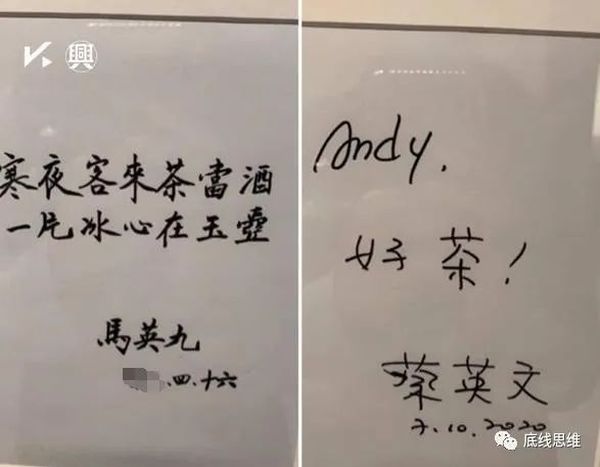 K 興
寒夜客來茶當酒
一片冰心在玉壺
馬英九
.四.十六
Andy.
好茶!
蔡英文
7.10.2020
底线思维